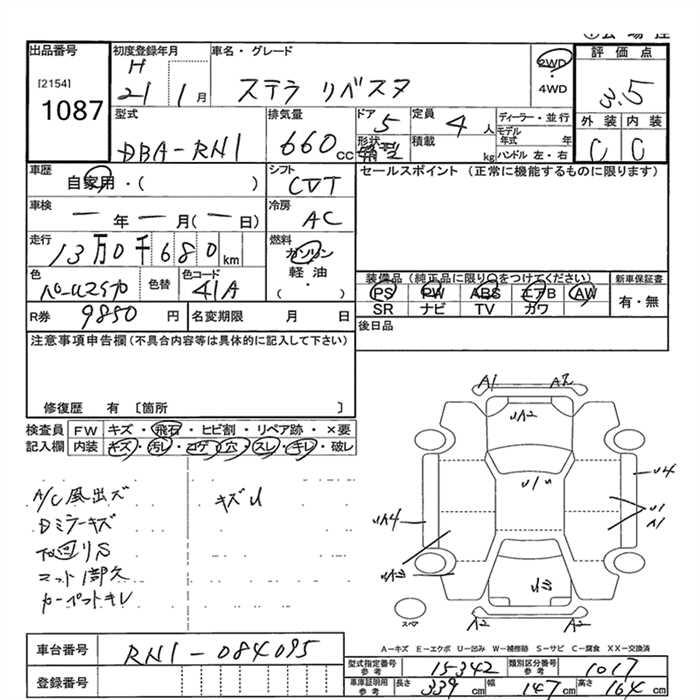 出品番号
[2154]
1087
初度登録年月
H
21 1 月
車名・グレード
ステラ リベスタ
2WD
・
4WD
評価点
3.5
外装 内装
C C
型式
DBA-RN1
排気量
660 cc
ドア
5
形状
定員
4 人
積載
kg
ディーラー・並行
モデル
年式 年
ハンドル 左・右
車歴
自家用・( )
シフト
CVT
セールスポイント (正常に機能するものに限ります)
車検
ー 年 ー 月(ー 日)
冷房
AC
走行
13万0千680 km
燃料
ガソリン
軽油
・
( )
色
色替
色コード
41A
装備品(純正品に限り○をつけてください)
新車保証書
PS PW ABS エアB AW
SR ナビ TV カワ
有・無
R券 9850 円
名変期限 月 日
後日品
注意事項申告欄(不具合内容等は具体的に記入して下さい)
修復歴 有 〔箇所 〕
検査員 FW キズ・飛石・ヒビ割・リペア跡・×要
記入欄 内装 キズ・汚レ・コゲ・穴・スレ・キレ・破レ
A/C風出ズ
キズU
Dミラーキズ
下回りS
マット1部欠
カーペットキレ
A1 A2
UA2
U1U
U4
UA4
U1
A1
A2 A2
スペア
A－キズ E－エクボ U－凹み W－補修跡 S－サビ C－腐食 XX－交換済
車台番号 RN1-084095
登録番号
型式指定番号
参考
15342
類別区分番号
参考
1017
車庫証明用
参考
長さ 339 cm 幅 147 cm 高さ 164 cm